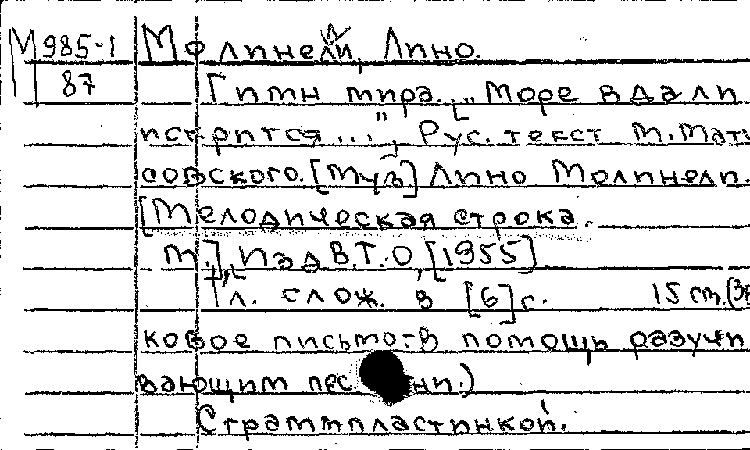 М 985-1 Молинели, Лино.
87 Гимн мира. „Море вдали
искрится...", Рус. текст М. Мату
совского. [Муз] Лино Молинели.
[Мелодическая строка.
М.], Изд В.Т.О, [1955]
1 л. слож. в [6] с. 15 см. (Зв
ковое письмо-в помощь разучи
вающим песни.)
С граммпластинкой.